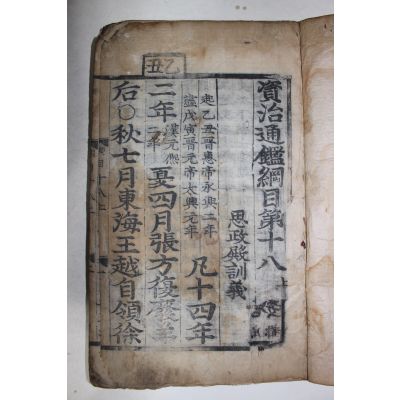 資治通鑑綱目第十八上
思政殿訓義
起乙丑晉惠帝永興二年
盡戊寅晉元帝太興元年
凡十四年
乙丑
二年漢元熙二年夏四月張方復廢羊
后○秋七月東海王越自領徐